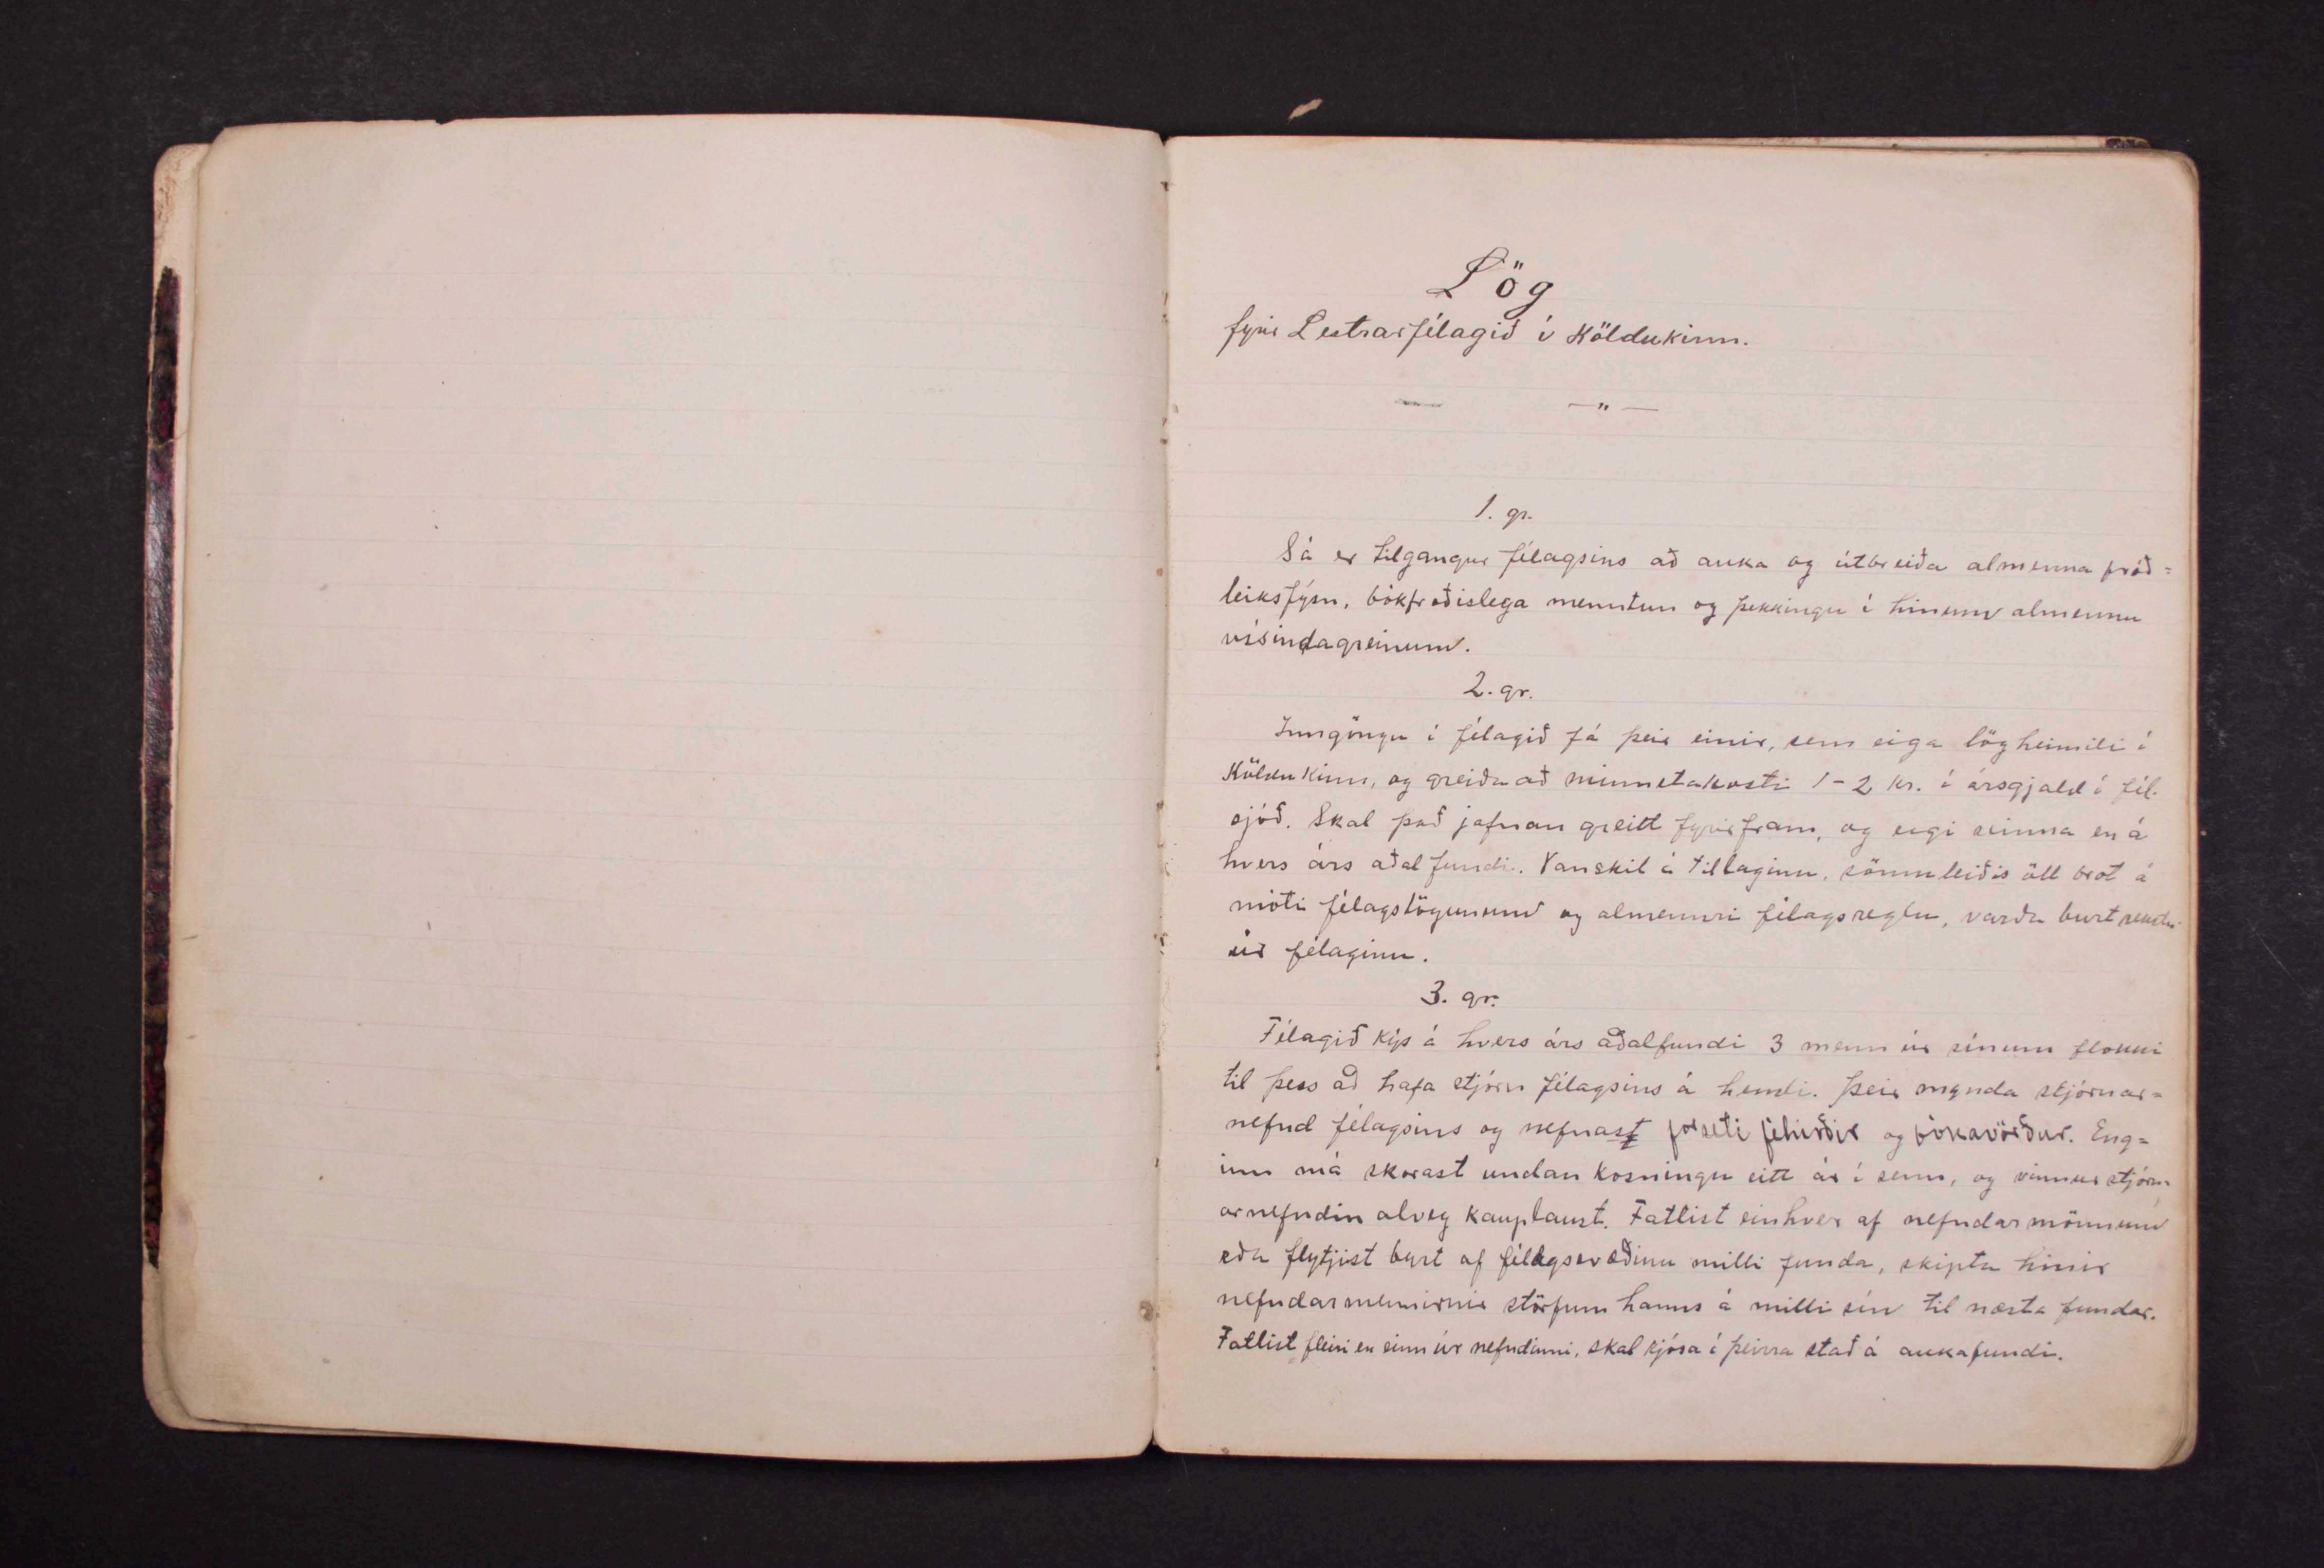 Lög
fyrir Lestrarfélagið í Köldukinn.
— " —
1. gr.
Sá er tilgangur félagsins að auka og útbreiða almenna fróð=
leiksfýsn, bókfræðislega menntun og þekkingu í hinum almennu
vísindagreinum.
2. gr.
Inngöngu í félagið fá þeir einir, sem eiga lögheimili í
Köldukinn, og greiða að minnstakosti 1-2 kr. í ársgjald í fél.
sjóð. Skal það jafnan greitt fyrirfram, og eigi seinna en á
hvers árs aðalfundi. Vanskil á tillaginu, sömuleiðis öll brot á
móti félagslögunum og almennri félagsreglu, varða burtrekstri
úr félaginu.
3. gr.
Félagið kýs á hvers árs aðalfundi 3 menn úr sínum flokki
til þess að hafa stjórn félagsins á hendi. Þeir mynda stjórnar=
nefnd félagsins og nefnast forseti féhirðir og bókavörður. Eng=
inn má skorast undan kosningu eitt ár í senn, og vinnur stjórn=
arnefndin alveg kauplaust. Fatlist einhver af nefndarmönnum
eða flytjist burt af félagssvæðinu milli funda, skipta hinir
nefndarmennirnir störfum hanns á milli sín til næsta fundar.
Fatlist fleiri en einn úr nefndinni, skal kjósa í þeirra stað á aukafundi.